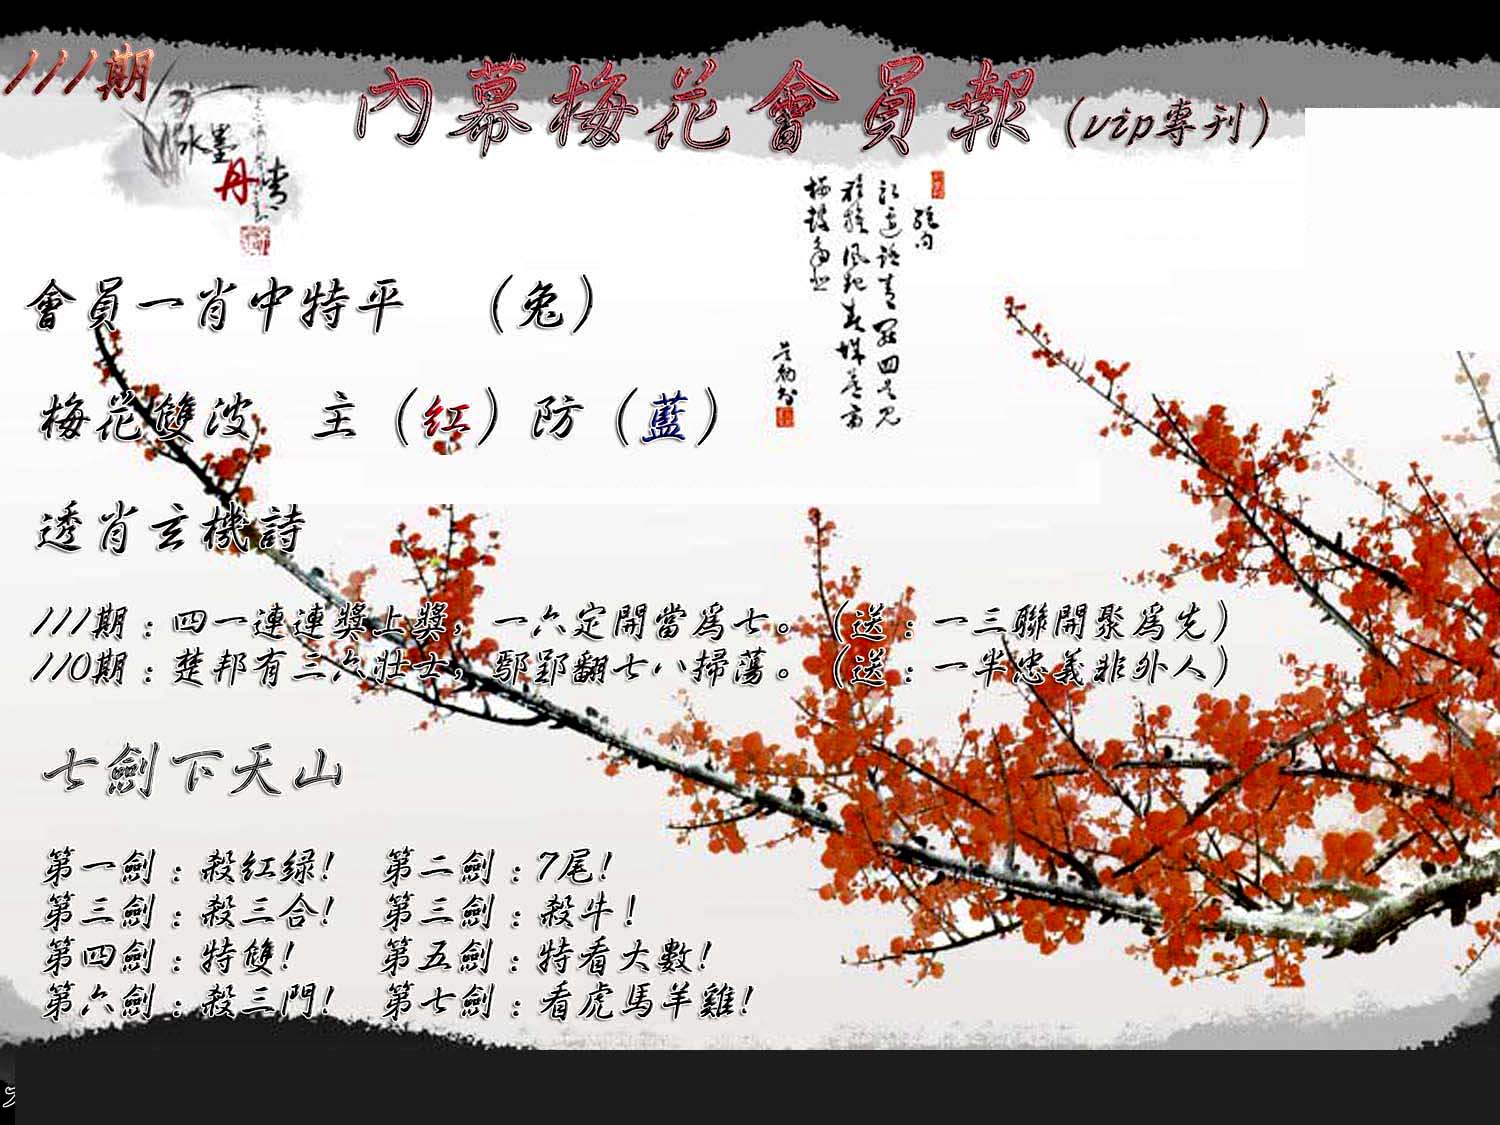 111期
內幕梅花會員報(vip專刊)
水墨
丹青
會員一肖中特平 （兔）
梅花雙波 主（紅）防（藍）
透肖玄機詩
111期：四一連連獎上獎，一六定開當爲七。（送：一三聯開聚爲先）
110期：楚邦有三六壯士，鄢郢翻七八掃蕩。（送：一半忠義非外人）
七劍下天山
第一劍：殺紅绿! 第二劍：7尾!
第三劍：殺三合! 第三劍：殺牛!
第四劍：特雙! 第五劍：特看大數!
第六劍：殺三門! 第七劍：看虎馬羊雞!